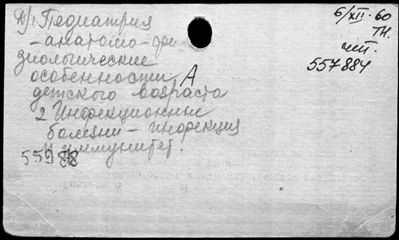 1 Педиатрия
- анатомо-фи
зиологические
особенности
детского возраста
2 Инфекционные
болезни - инфекция
и иммунитет.
6/XII-60
чит.
557884